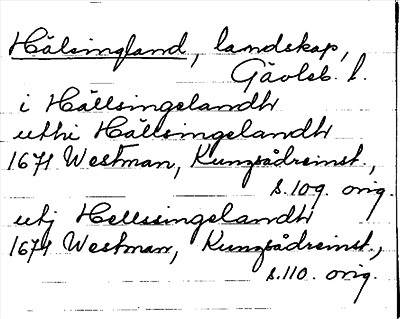 Hälsingland, landskap,
Gävleb. l.
i Hällsingelandh
uthi Hällsingelandh
1671 Westman, Kungsådreinst.,
s. 109. orig.
utj Hellssingelandh
1671 Westman, Kungsådreinst.,
s. 110. orig.